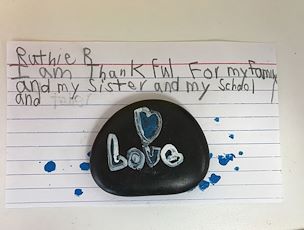 Ruthie R
I am Thankful For my family
and my sister and my School
and
Love